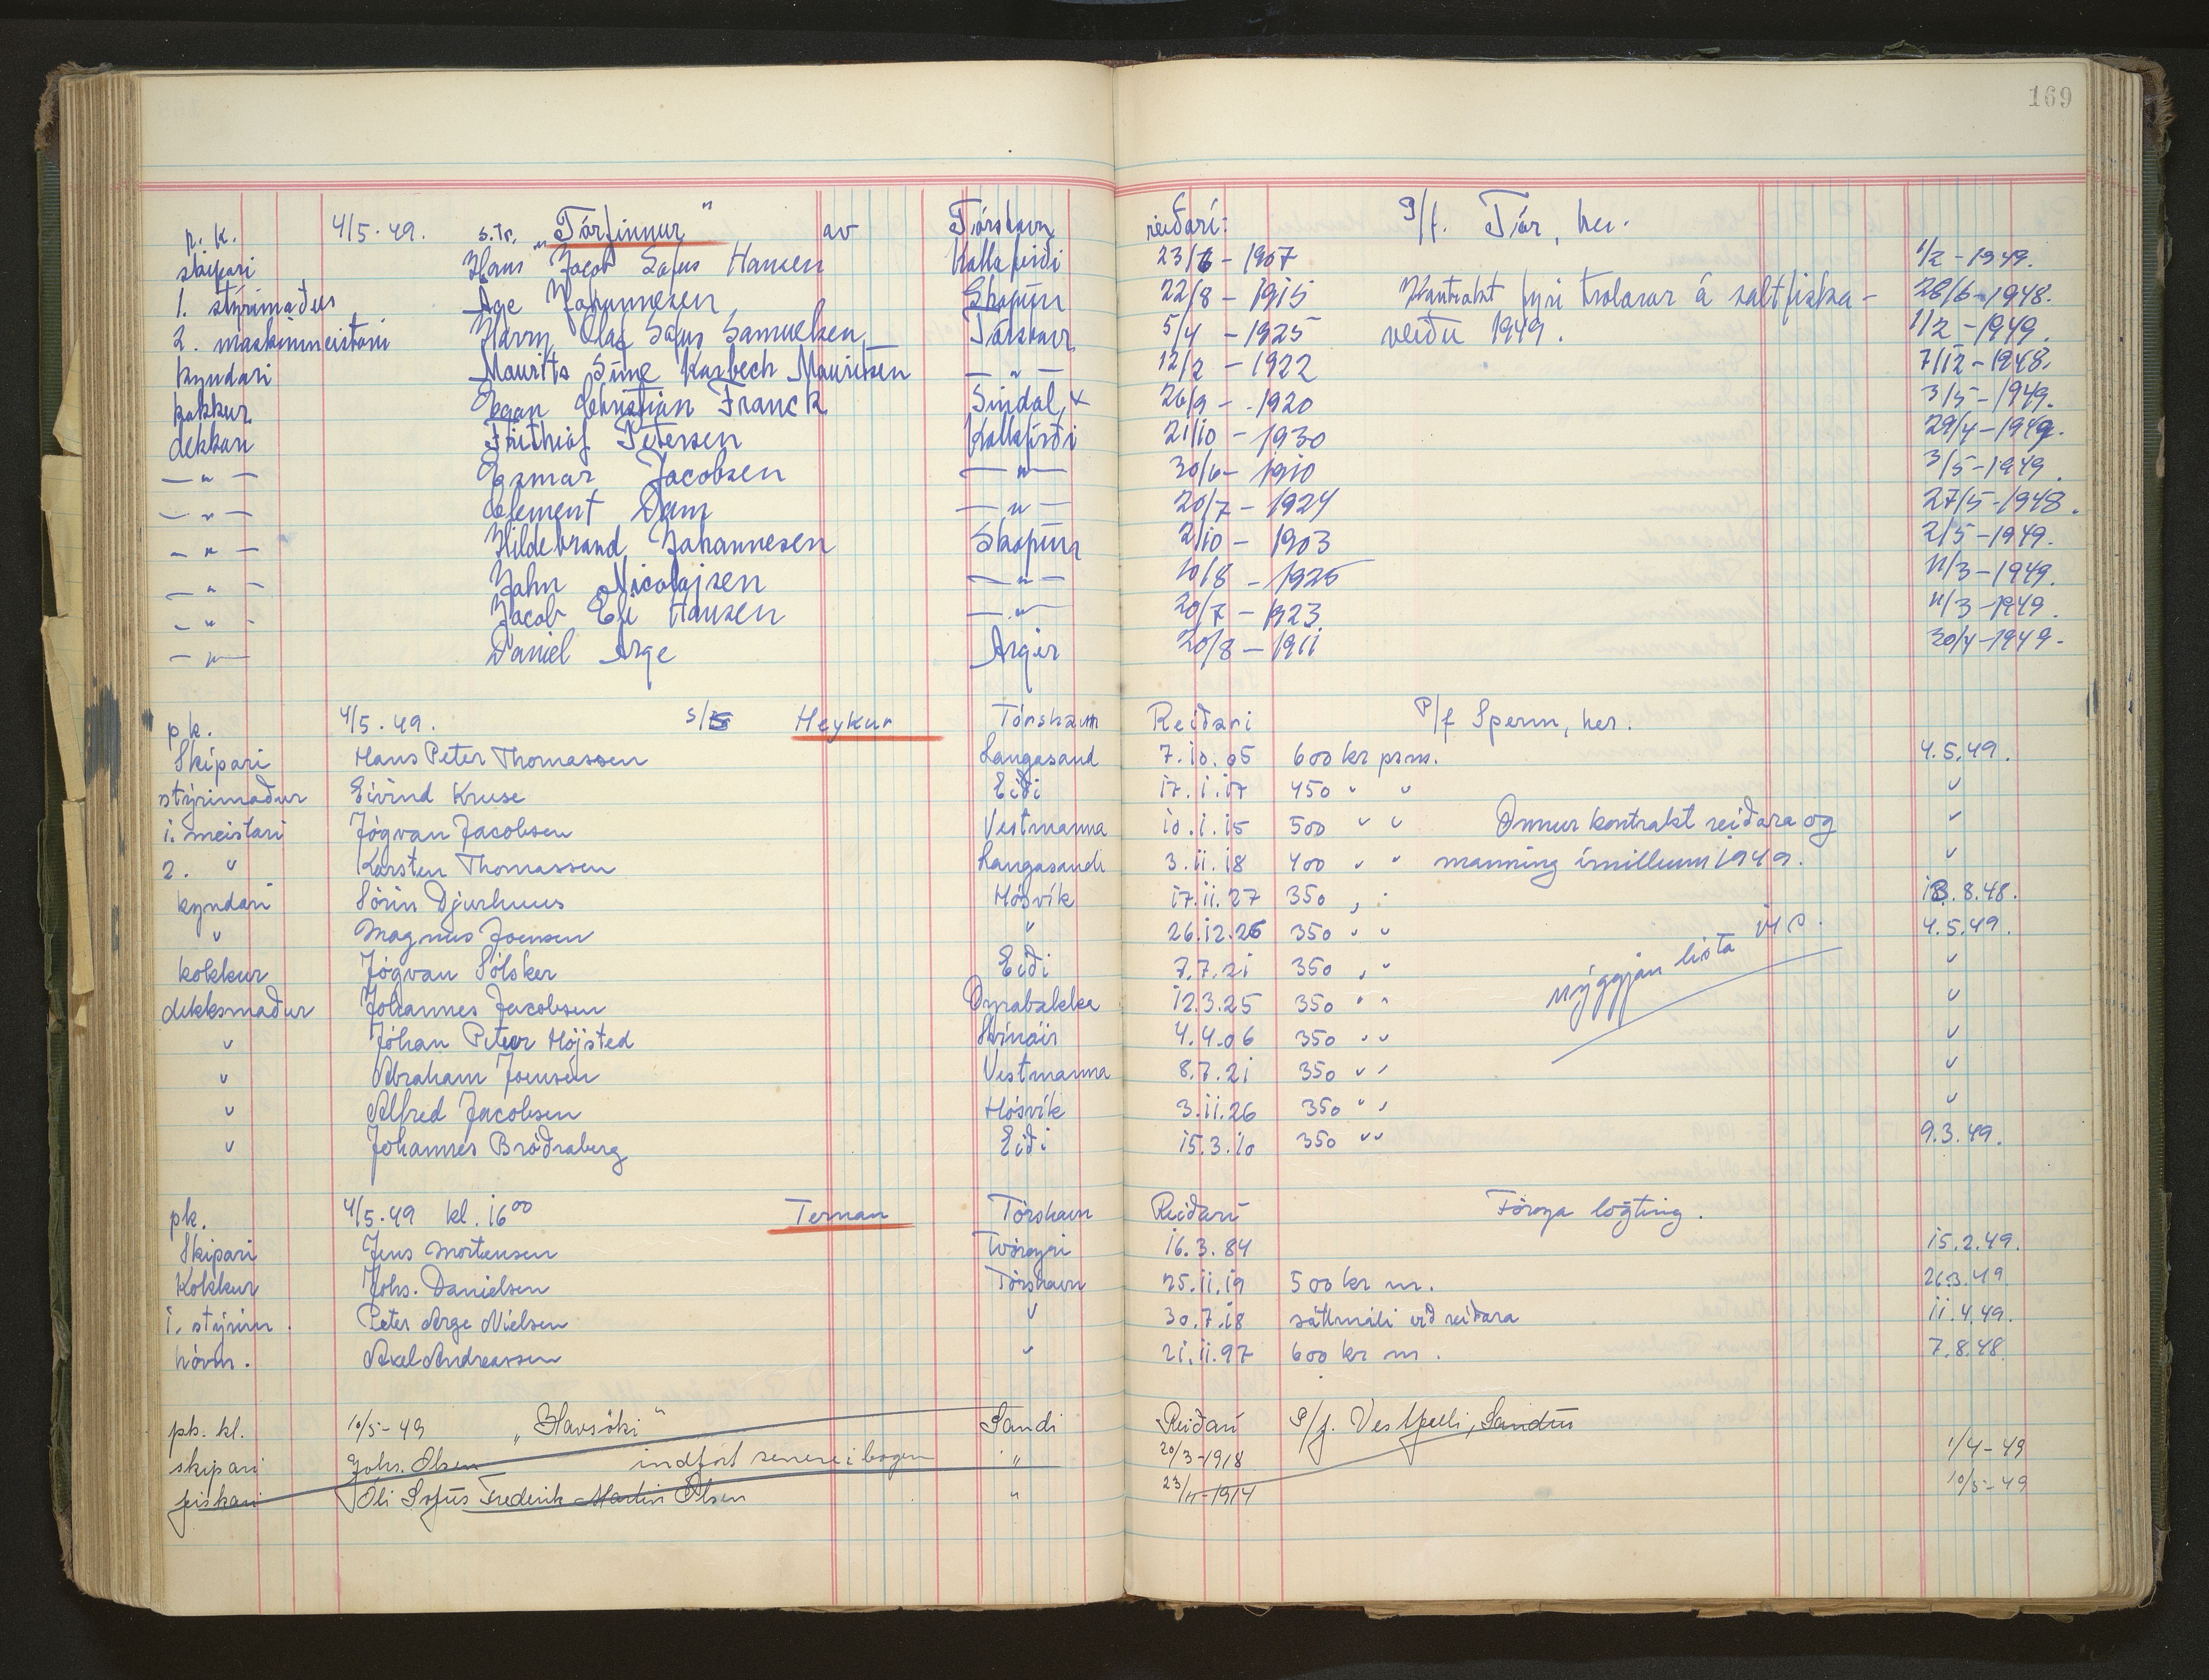 169
p. k. 4/5-49. s.tr. „Tórfinnur" av Tórshavn reiðarí: P/f. Tór, her.
skipari Hans Jacob Sofus Hansen Kollafirði 23/6-1907 1/2-1949.
1. stýrimaður Age Johannesen Skopun 22/8-1915 Kontrakt fyri trolarar á saltfiska- 28/6-1948.
2. maskinmeistari Harry Olaf Sofus Samuelsen Tórshavn 5/4-1925 veiðu 1949. 1/2-1949.
kyndari Maurits Sune Karbech Mouritsen —"— 12/2-1922 7/12-1948.
kokkur Egon Christian Franck Sindal, 26/9-1920 3/5-1949.
dekkari Frithiof Petersen Kollafirði 21/10-1930 29/4-1949.
—"— Jacobsen —"— 30/6-1910 3/5-1949.
—"— Clement Dam —"— 20/7-1924 27/5-1948.
—"— Hildebrand Johannesen Skopun 2/10-1903 2/5-1949.
—"— John Nicolajsen —"— 10/8-1925 11/3-1949.
—"— Jacob Eli Hansen —"— 20/7-1923 11/3-1949.
—"— Daniel Arge Argir 20/8-1911 30/4-1949.
pk. 4/5-49. s/s Heykur Tórshavn Reiðari P/f Sperm, her.
Skipari Hans Peter Thomassen Langasand 7.10.05 600 kr pr.m. 4.5.49.
stýrimaður Eivind Kruse Eiði 17.1.17 450 " " "
1. meistari Jógvan Jacobsen Vestmanna 10.1.15 500 " " Onnur kontrakt reiðara og "
2. " Karsten Thomassen Langasandi 3.11.18 400 " " manning ímillum 1949. "
kyndari Sörin Djurhuus Hósvík 17.11.27 350 " " 18.8.48.
" Magnus Joensen " 26.12.26 350 " " 4.5.49.
kokkur Jógvan Sólsker Eiði 7.7.21 350 " " nýggjan lista "
dekksmaður Johannes Jacobsen Oyrabakka 12.3.25 350 " " "
" Jóhan Peter Höjsted Svínáir 4.4.06 350 " " "
" Abraham Joensen Vestmanna 8.7.21 350 " " "
" Alfred Jacobsen Hósvík 3.11.26 350 " " "
" Johannes Bróðraberg Eiði 15.3.10 350 " " 9.3.49.
pk. 4/5-49 kl. 16 00 Ternan Tórshavn Reiðari Föroya lögting.
Skipari Jens Mortensen Tvöroyri 16.3.84 15.2.49.
Kokkur Johs. Danielsen Tórshavn 25.11.19 500 kr m. 26.3.49
1. stýrim. Peter Arge Nielsen " 30.7.18 sáttmáli við reiðara 11.4.49.
hövm. Axel Andreassen " 21.11.97 600 kr m. 7.8.48
pk. kl. 10/5-49 „Havsöki" Sandi Reiðari P/f. Vesturli, Sandur
skipari Johs. Olsen indfört senere i bogen " 20/3-1918 1/4-49
fiskari Óli Sofus Frederik Martin Olsen " 23/11-1914 10/5-49